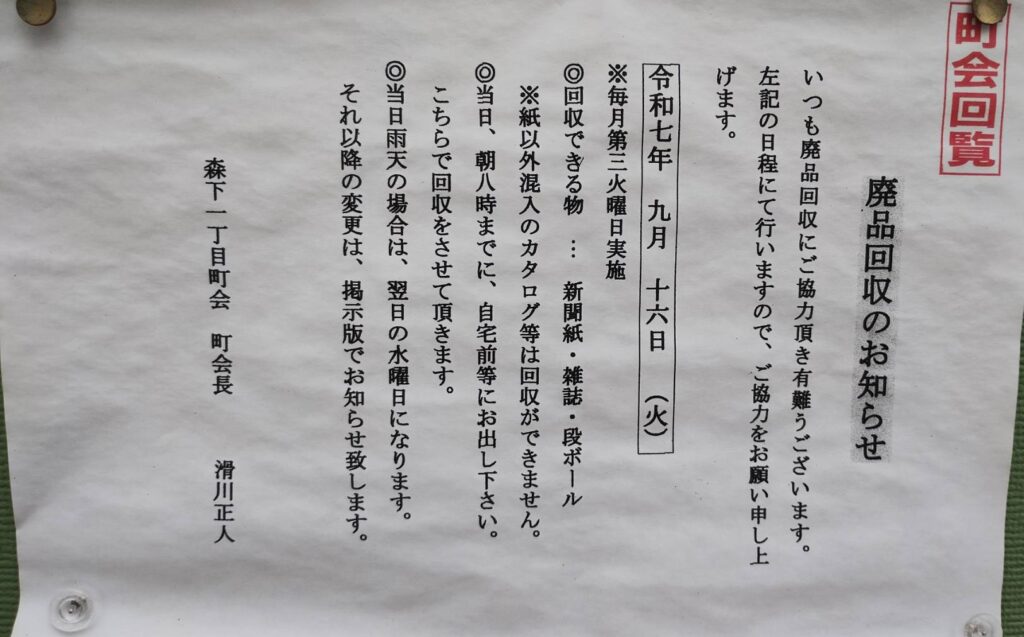 町会回覧
廃品回収のお知らせ
いつも廃品回収にご協力頂き有難うございます。
左記の日程にて行いますので、ご協力をお願い申し上
げます。
令和七年 九月 十六日 (火)
※毎月第三火曜日実施
◎回収できる物 … 新聞紙・雑誌・段ボール
※紙以外混入のカタログ等は回収ができません。
◎当日、朝八時までに、自宅前等にお出し下さい。
こちらで回収をさせて頂きます。
◎当日雨天の場合は、翌日の水曜日になります。
それ以降の変更は、掲示版でお知らせ致します。
森下一丁目町会 町会長 滑川正人